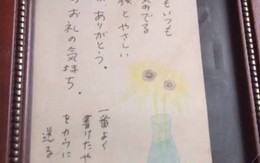 もいつも
気のでる
後とやさしい
がありがとう。
のお礼の気持ち。
一番よく
書けたや
をカラに
送る